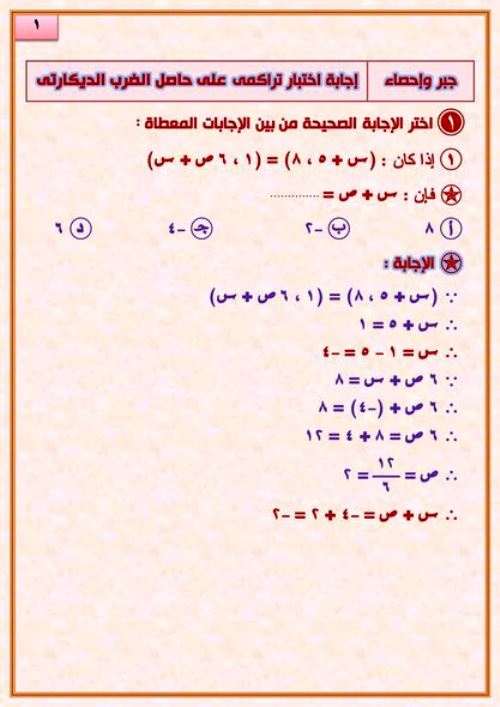 ١
جبر وإحصاء إجابة اختبار تراكمى على حاصل الضرب الديكارتى
١ اختر الإجابة الصحيحة من بين الإجابات المعطاة :
١ إذا كان : (س + ٥ ، ٨) = (١ ، ٦ ص + س)
فإن : س + ص = ..............
أ ٨ ب -٢ جـ -٤ د ٦
الإجابة :
∵ (س + ٥ ، ٨) = (١ ، ٦ ص + س)
∴ س + ٥ = ١
∴ س = ١ - ٥ = -٤
∵ ٦ ص + س = ٨
∴ ٦ ص + (-٤) = ٨
∴ ٦ ص = ٨ + ٤ = ١٢
∴ ص = ١٢/٦ = ٢
∴ س + ص = -٤ + ٢ = -٢